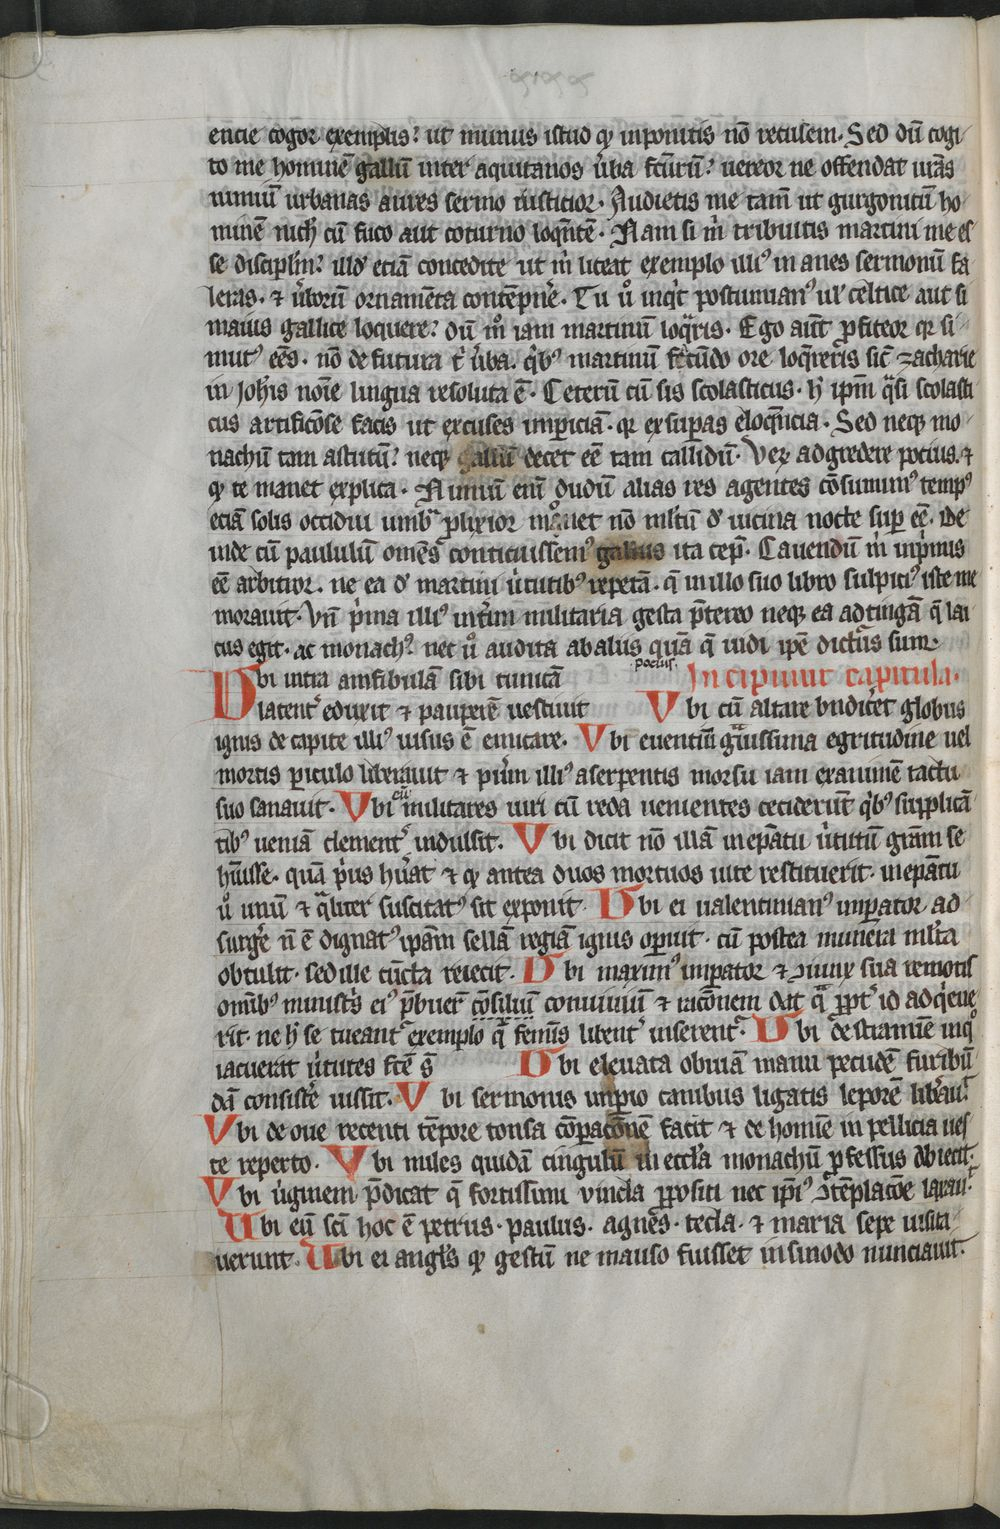 encie cogor exemplis? ut munus istud qꝫ inponitis nō recusem. Sed dū cogi
to me hominē gallū inter aquitanos ůba fcūrū? uereor ne offendat ur̄as
nimiū urbanas aures sermo rusticior. Audietis me tam̄ ut gurgonicū ho
minē nich̄ cū fuco aut coturno loqn̄tē. Nam si m̊ tribuitis martini me es
se disciplm̄? illd' etiā concedite ut m̊ liceat exemplo illiꝰ inanes sermonū fa
leras. ⁊ ůborū ornamēta contēpne̊. Tu ů inqͥt postumianꝰ ul̓ celtice aut si
mauis gallice loquere? dū m̊ iam martinū loqͣris. Ego aūt ꝓfiteor qr si
mutꝰ eēs. nō defutura t̊ ůba. qͥbꝰ martinū fecūdo ore loqr̄eris sic̄ zacharie
in Joh̄is noīe lingua resoluta ē. Ceterū cū sis scolasticus. h̓ ip̄m qͣsi scolasti
cus artificōse facis ut excuses imꝑiciā. qr exsuꝑas eloqn̄cia. Sed neqꝫ mo
nachū tam astutū? neqꝫ gallū decet eē tam callidū. Veꝝ adgredere pocius. ⁊
qꝫ te manet explica. Nimiū enī dudū alias res agentes cōsumimꝰ tempꝰ
etiā solis occidui umbͣ ꝓlixior monet nō ml̄tū d' uicina nocte suꝑ eē. De
inde cū paululū om̄es conticuissemꝰ gallus ita cep̄. Cauendū m̊ inpͥmis
eē arbitror. ne ea d' martini ůtutibꝰ repetā. q̄ in illo suo libro sulpitiꝰ iste me
morauit. Vn̄ pͥma illiꝰ int̊im militaria gesta p̄tereo neqꝫ ea adtingā q̄ lai
cus egit. ac monachꝰ. nec ů audita ab aliis quā q̄ uidi ip̄e dictūs sum.
pocius.
Ubi intra amfibulā sibi tunicā Incipiunt capitula.
latent̓ eduxit ⁊ pauperē uestiuit Vbi cū altare bn̄dic̊et globus
ignis de capite illiꝰ uisus ē emicare. Vbi euentiū gͣuissima egritudine uel
mortis ꝑiculo liberauit ⁊ puͥm illiꝰ a serpentis morsu iam exanimē tactu
suo sanauit. Vbi eū militares uiri cū reda uenientes ceciderūt qͥbꝰ supplicā
tibꝰ ueniā clement̓ indulsit. Vbi dicit nō illā in ep̄atu ůtutū gr̄am se
hūisse. quā pͥus hūat ⁊ qꝫ antea duos mortuos uite restituerit. in ep̄atu
ů unū ⁊ qͣliter suscitatꝰ sit exponit. Ubi ei ualentinianꝰ imꝑator ad
surge̊ n̄ ē dignatꝰ ip̄am sellā regiā ignis oꝑuit. cū postea munera ml̄ta
obtulit. sed ille cūcta reiecit. Ubi maximꝰ imꝑator ⁊ ꝯiunx sua remotis
om̄ibꝰ minist̊s eiꝰ p̄buer̄ cōsiliū conuiuiū ⁊ racōnem dat qͣ ꝓpt̓ id adqͥeue
rit. ne h̓ se tueant̓ exemplo qͥ femīs libent̓ inserent̓. Ubi de stramine in qͦ
iacuerit ůtutes fcē s̄ Ubi eleuata obuiā manu pecudē furibū
dā consiste̊ iussit. Vbi sermonis imꝑio canibus ligatis leporē lib̊auͭ.
Vbi de oue recenti tēpore tonsa cōparacōnē facit ⁊ de homīe in pellicia ues
te reperto. Vbi miles quidā cingulū in eccl̄a monachū ꝓfessus obiecit.
Vbi ůginem p̄dicat q̄ fortissimi uincla ꝓpositi nec ip̄iꝰ ꝯtēplacōe laxauͭ.
Ubi eū sc̄i hoc ē petrus. paulus. agnēs. tecla. ⁊ maria sepe uisita
uerunt. Ubi ei angl̄s qꝫ gestū nemauso fuisset in sinodo nunciauit.